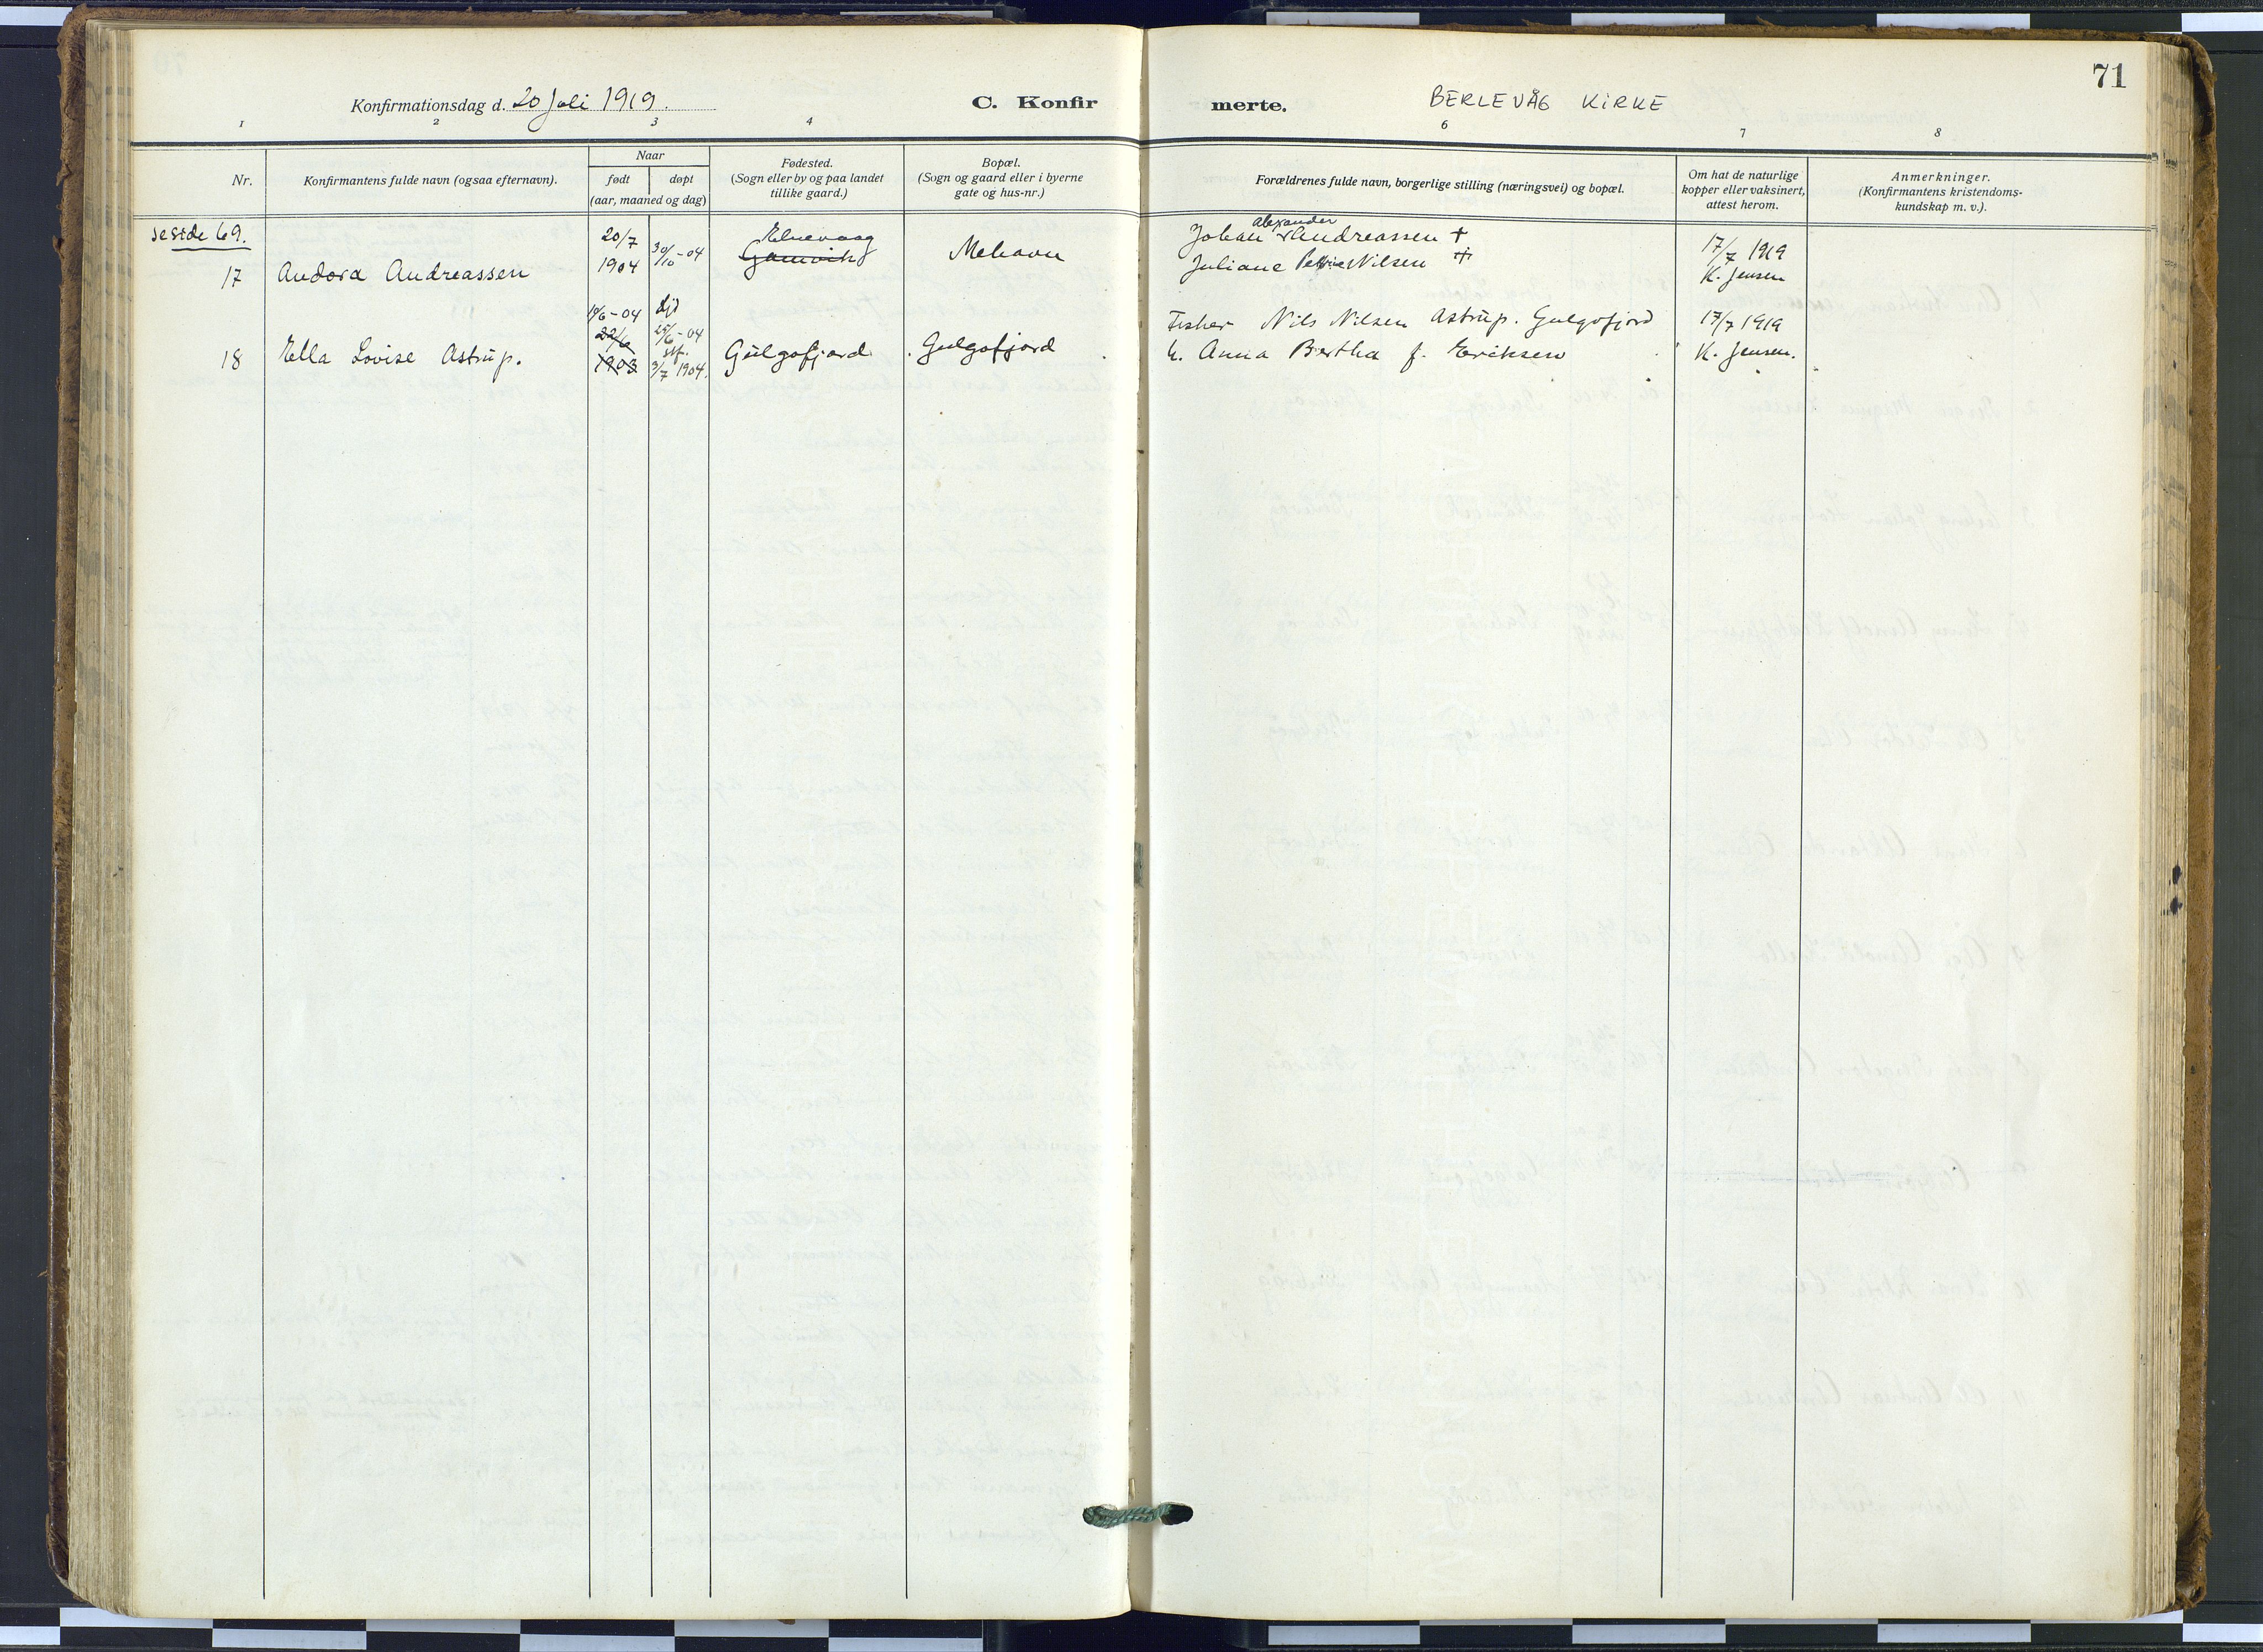 71
Konfirmationsdag d. 20 Juli 1919.
C. Konfirmerte.
BERLEVÅG KIRKE
1 2 3 4 6 7 8
Nr.
Konfirmantens fulde navn (ogsaa efternavn).
Naar
født døpt
(aar, maaned og dag)
Fødested.
(Sogn eller by og paa landet
tillike gaard.)
Bopæl.
(Sogn og gaard eller i byerne
gate og hus-nr.)
Forældrenes fulde navn, borgerlige stilling (næringsvei) og bopæl.
Om hat de naturlige
kopper eller vaksinert,
attest herom.
Anmerkninger.
(Konfirmantens kristendoms-
kundskap m. v.).
se side 69.
17 Andora Andreassen
20/7
1904
30/10-04
Gamvik
Mehavn
Johan Alexander Andreassen +
Juliane Nilsen +
17/7 1919
K. Jensen
18 Ella Lovise Astrup.
-04
22/6
1903
/6-04
3/7 1904.
Gulgofjord
Gulgofjord
Fisker Nils Nilsen Astrup. Gulgofjord
h. Anna Bertha f. Eriksen
17/7 1919
K. Jensen.